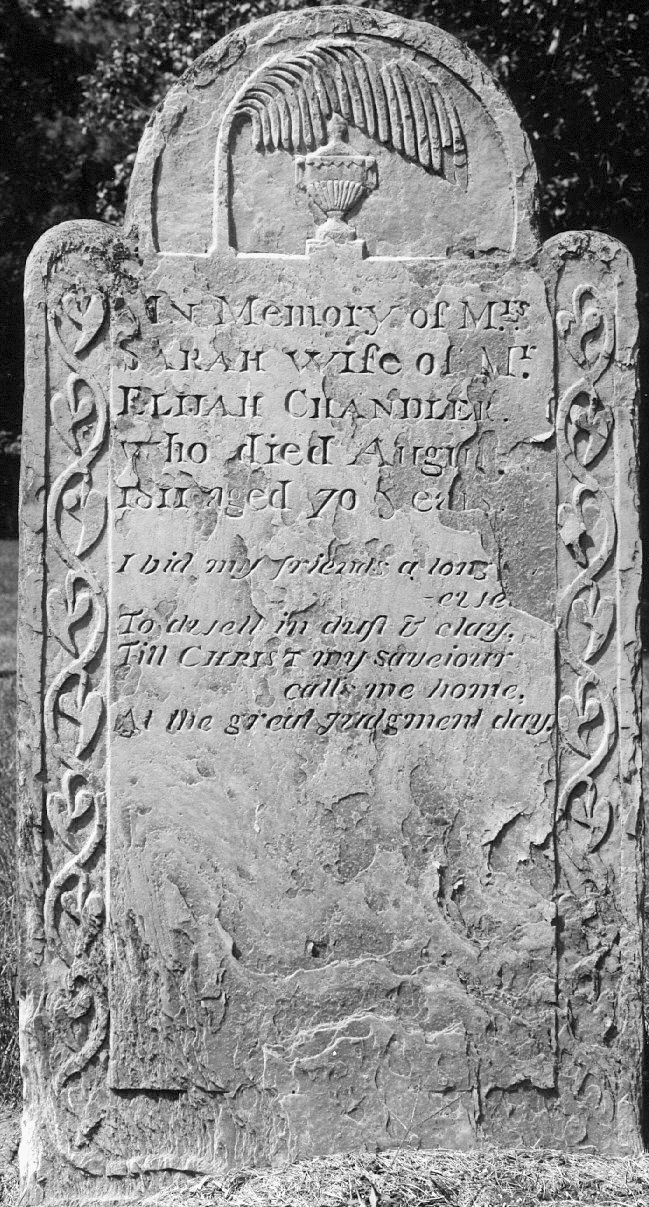 In Memory of Mrs
SARAH wife of Mr.
ELIJAH CHANDLER.
who died August
1811 aged 70 Years.
I bid my friends a long
-ewe
To dwell in dust & clay,
Till CHRIST my saveiour
calls me home,
At the great judgment day,